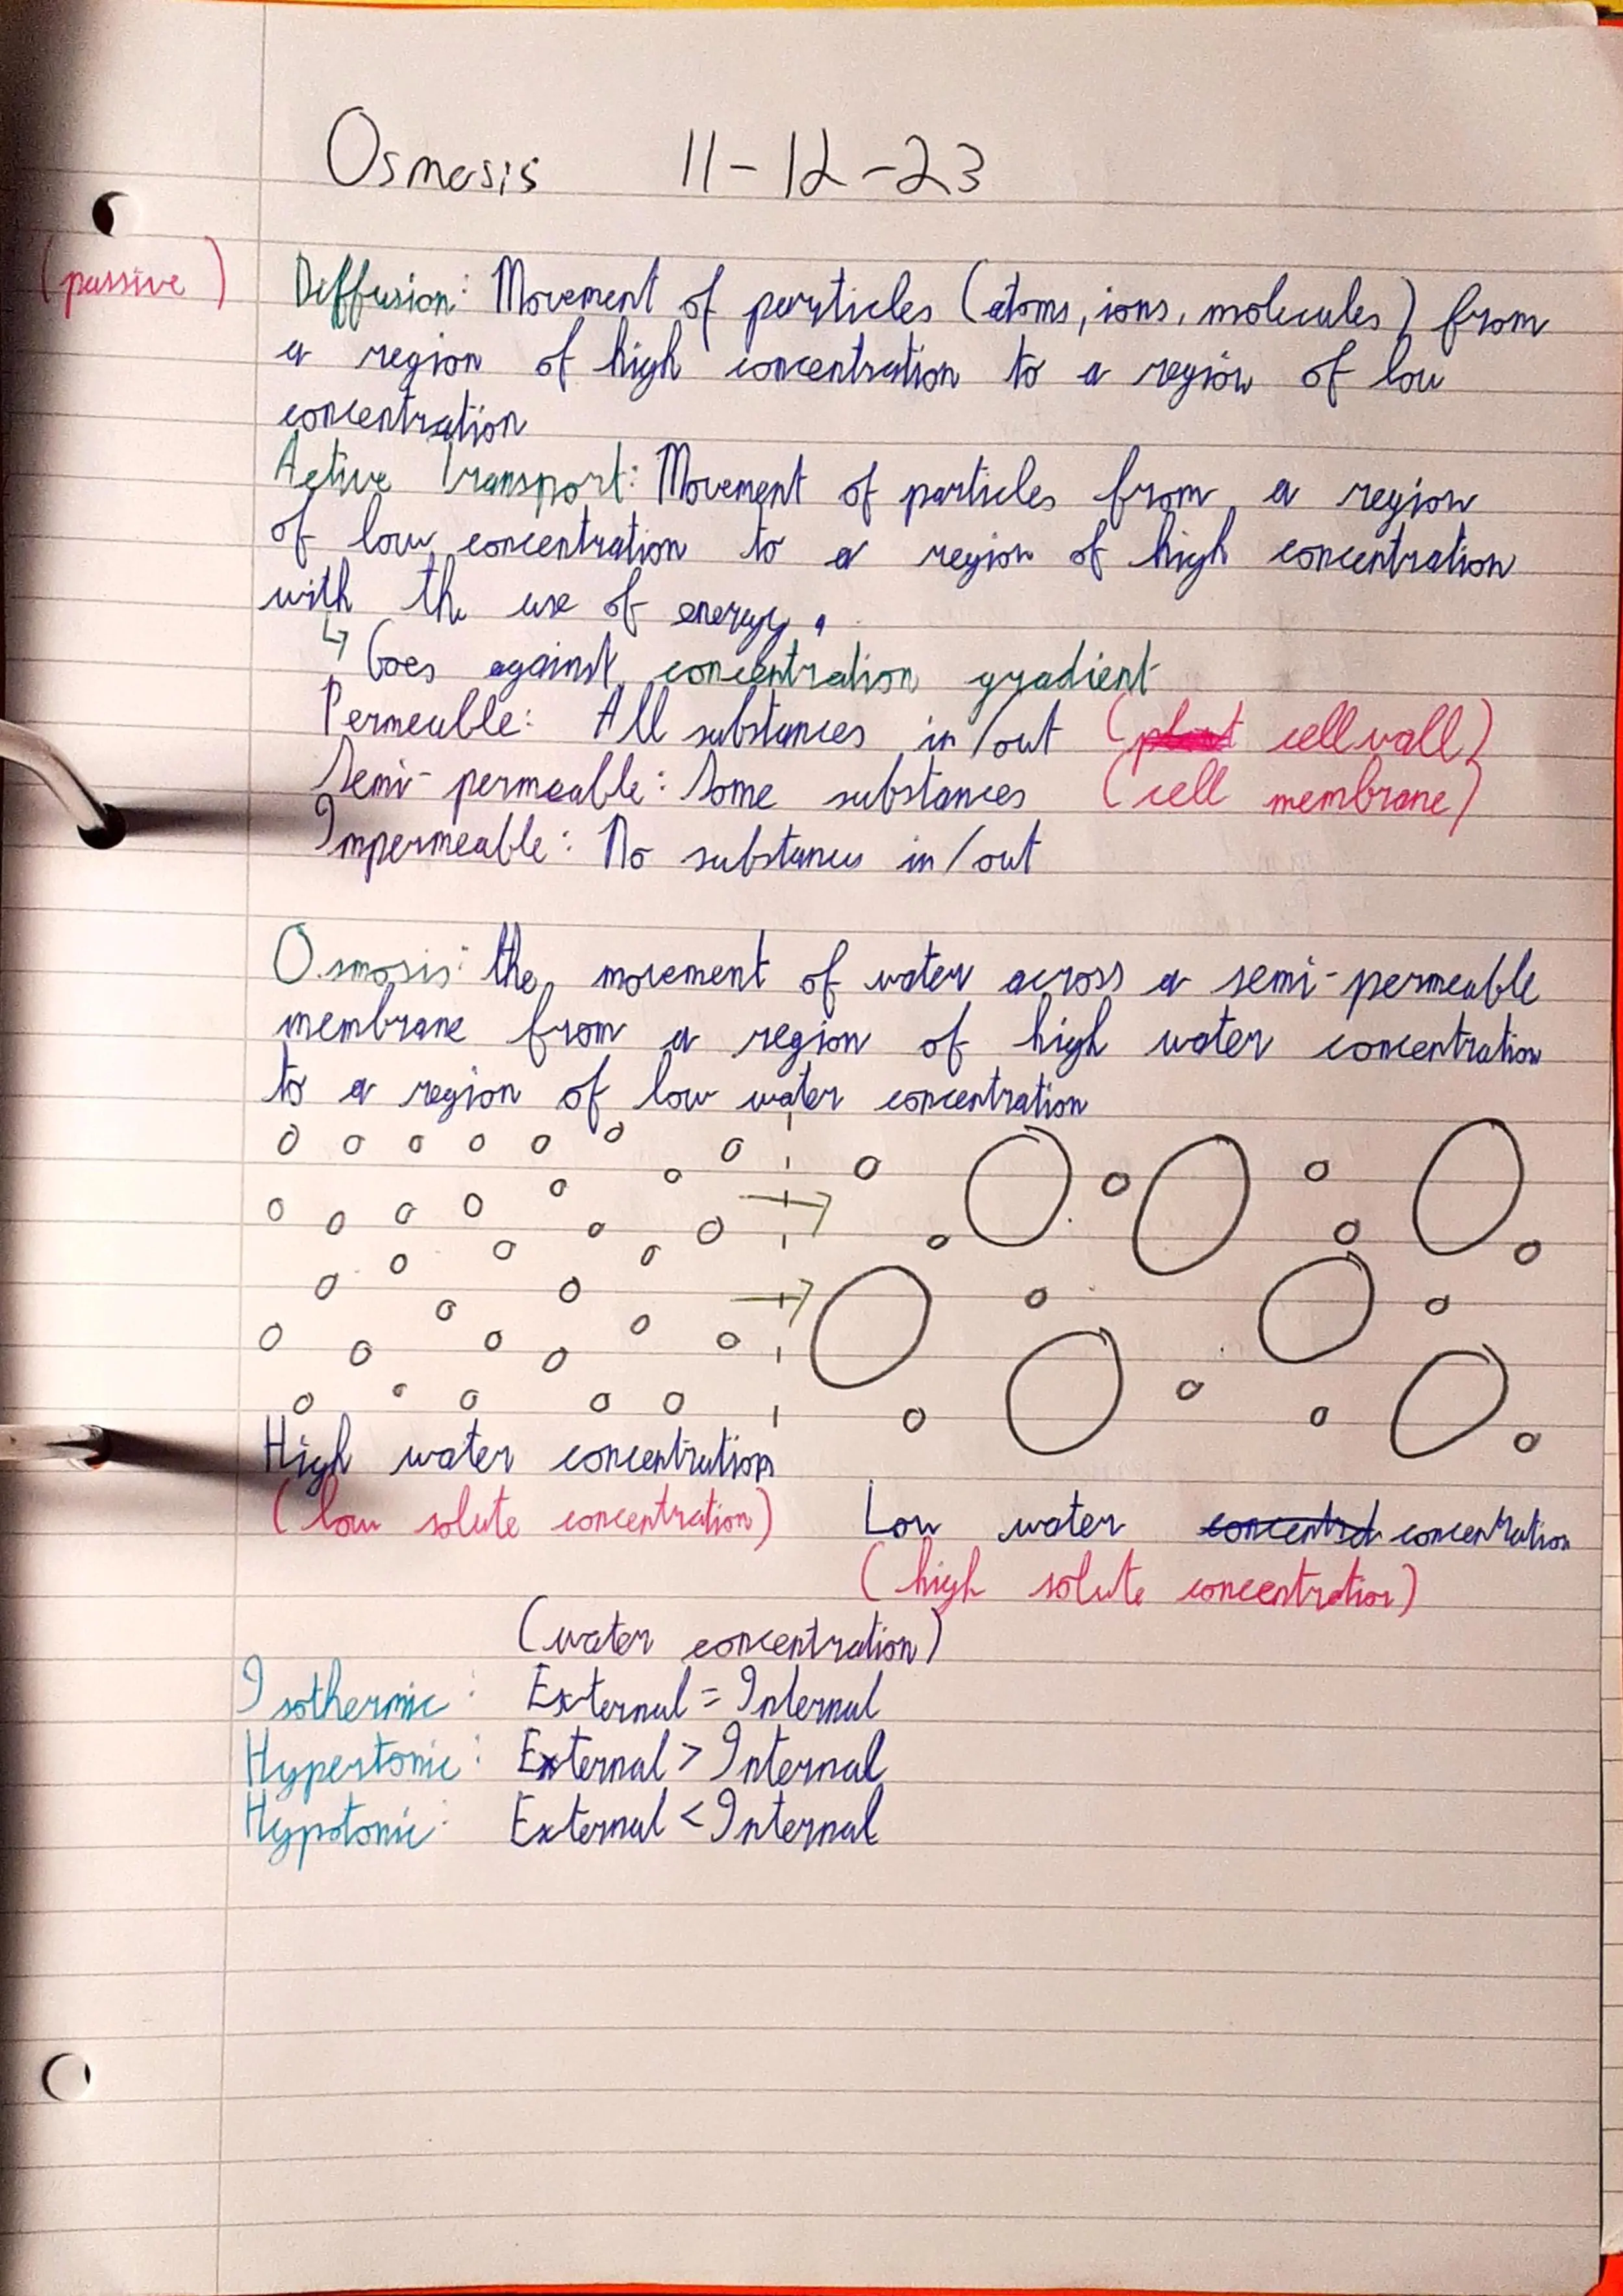 Osmosis 11-12-23
(passive) Diffusion: Movement of particles (atoms, ions, molecules) from
a region of high concentration to a region of low
concentration
Active Transport: Movement of particles from a region
of low concentration to a region of high concentration
with the use of energy.
↳ Goes against concentration gradient
Permeable: All substances in/out (plant cell wall)
Semi-permeable: Some substances (cell membrane)
Impermeable: No substances in/out
Osmosis: the movement of water across a semi-permeable
membrane from a region of high water concentration
to a region of low water concentration
High water concentration
(low solute concentration) Low water concentrat concentration
(high solute concentration)
(water concentration)
Isothermic: External = Internal
Hypertonic: External > Internal
Hypotonic: External < Internal